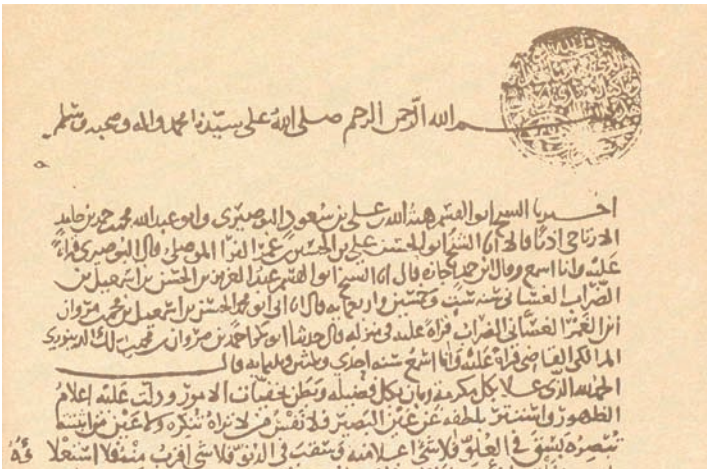 بسم الله الرحمن الرحيم صلى الله على سيدنا محمد واله وصحبه وسلم
اخبرنا الشيخ ابو القسم هبة الله بن علي بن سعود البوصيري وابو عبد الله محمد بن حمد بن حامد
الارتاحي اذنا قالا انا الشيخ ابو الحسن علي بن الحسين بن عمر الفرا الموصلي قال البوصيري قراة
عليه وانا اسمع وقال ابن حمد اجازه قال انا الشيخ ابو القسم عبد العزيز بن الحسن بن اسمعيل بن
الضراب الغساني سنه ست وخمسين واربعمايه قال انا ابي ابو محمد الحسن بن اسمعيل بن محمد بن مروان
الغساني الضراب قراة عليه في منزله قال حدثنا ابو بكر احمد بن مروان بن محمد بن ملك الدينوري
المالكي القاضي قراة عليه وانا اسمع سنه احدى وثلثين وثلثمايه قال
الحمد لله الذي علا بكل مكرمة وبان بكل فضيله وبطن بخفيات الامور ودلت عليه اعلام
الظهور واستتر بلطفه عن عين البصير فلا نفس من لا تراه تنكره ولا عين من اثبته
تبصره سبق في العلو فلا شي اعلا منه وقرب في الدنو فلا شي اقرب منه فلا استعلاوه